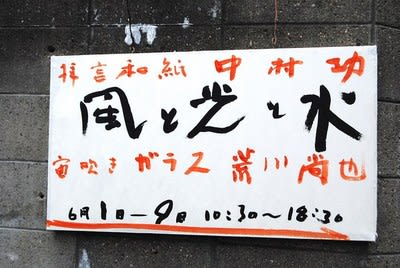 拝宮和紙 中村功
風と光と水
宙吹きガラス 荒川尚也
6月1日ー9日 10:30〜18:30